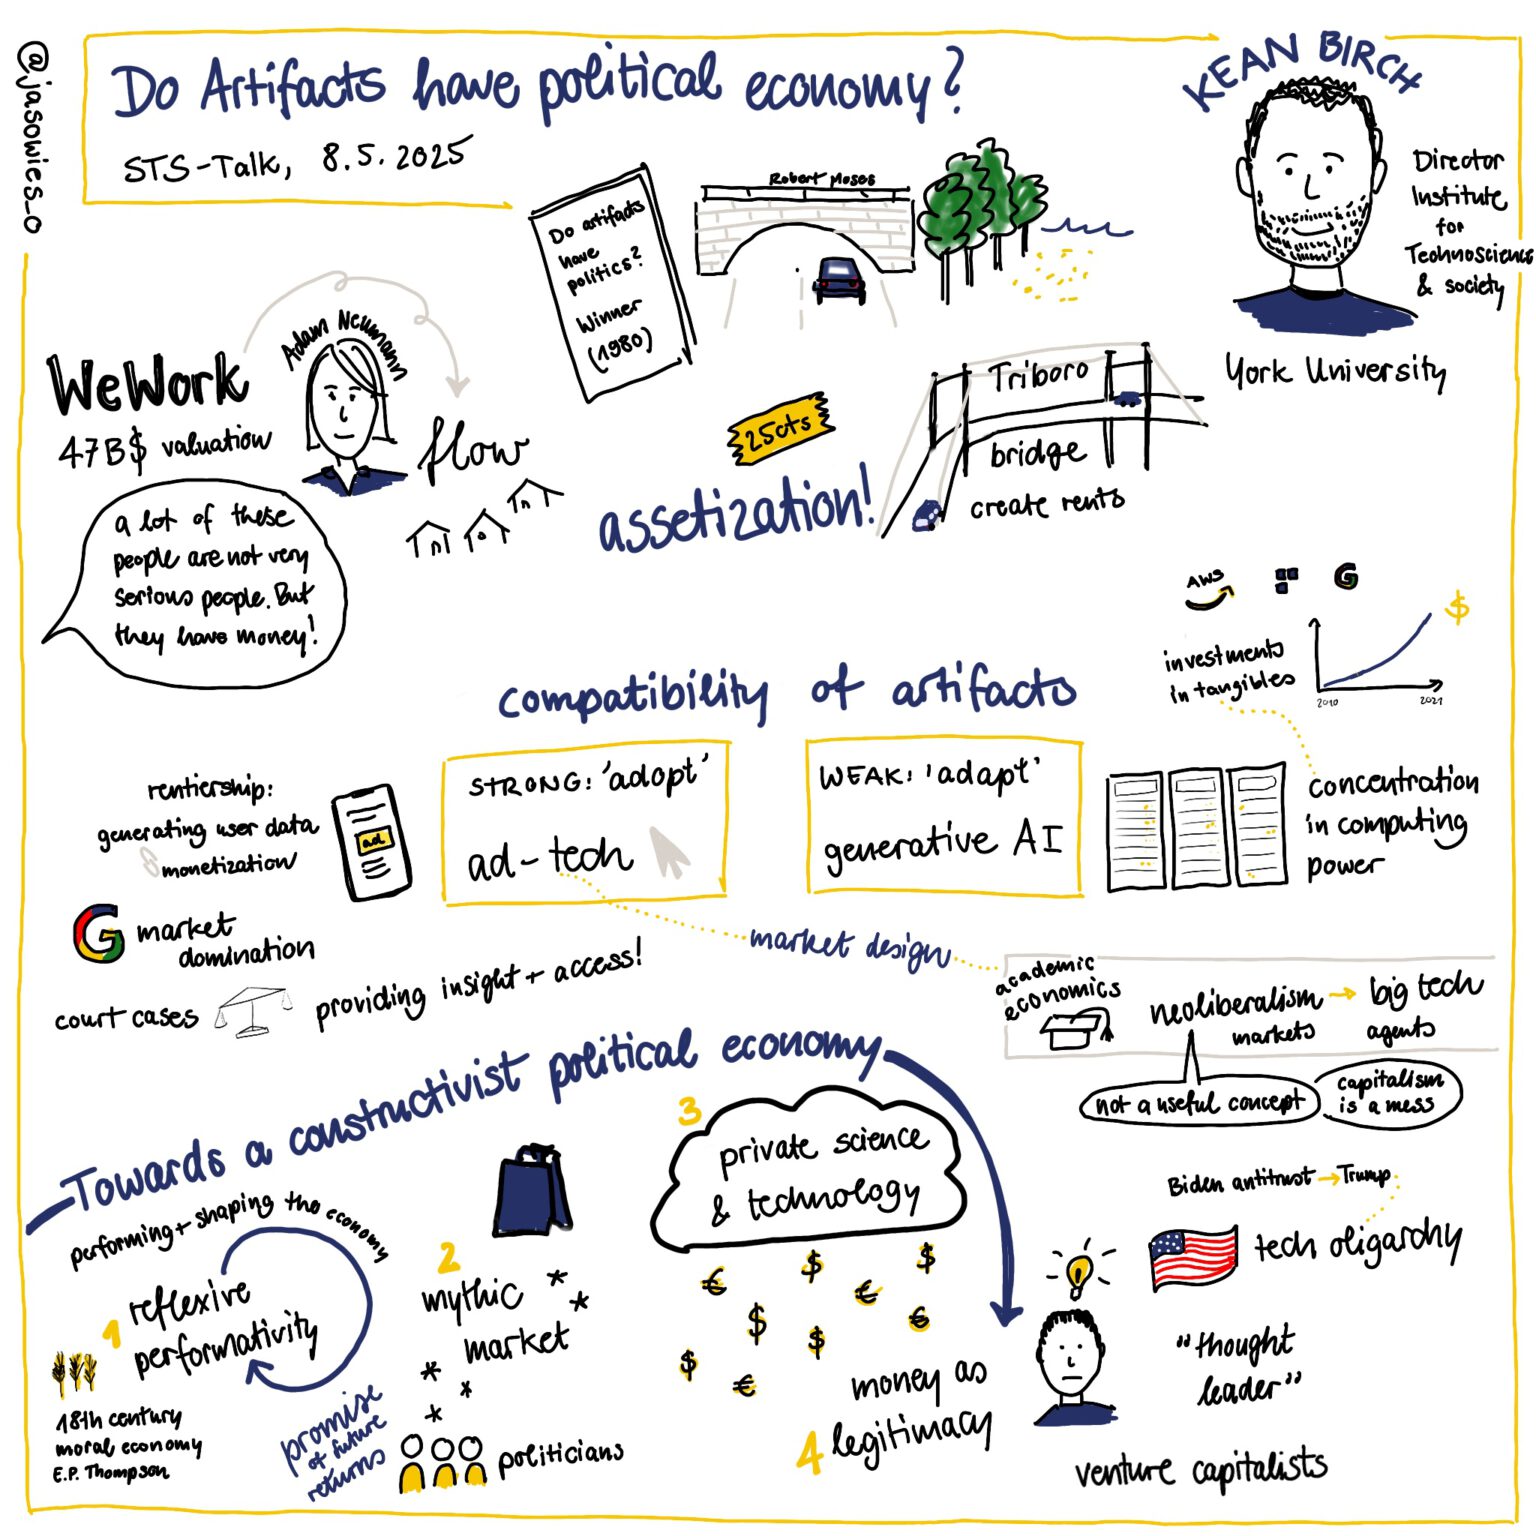 @jasowies_o
Do Artifacts have political economy?
STS-Talk, 8.5.2025
KEAN BIRCH
Director
Institute
for
Technoscience
& society
York University
Do artifacts
have
politics?
Winner
(1980)
Robert Moses
WeWork
47B$ valuation
Adam Neumann
flow
a lot of these
people are not very
serious people. But
they have money!
25cts
assetization!
Triboro
bridge
create rents
AWS
G
$
investments
in tangibles
2010
2021
compatibility of artifacts
STRONG: 'adopt'
ad-tech
WEAK: 'adapt'
generative AI
concentration
in computing
power
rentiership:
generating user data
monetization
ad
G market
domination
court cases
providing insight + access!
market design
academic
economics
neoliberalism → big tech
markets
agents
not a useful concept
capitalism
is a mess
Towards a constructivist political economy
performing + shaping the economy
1 reflexive
performativity
18th century
moral economy
E.P. Thompson
2
mythic
market
promise
of future
returns
politicians
3
private science
& technology
€ $ $
€
$ $ €
$ €
4 money as
legitimacy
Biden antitrust → Trump
tech oligarchy
"thought
leader"
venture capitalists